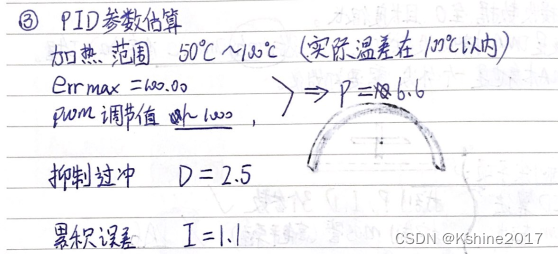 ③ PID参数估算
加热范围 50℃~100℃ (实际温差在100℃以内)
errmax = 100.00
pwm 调节值 ~1000, ⇒ P = 6.6
抑制过冲 D = 2.5
累积误差 I = 1.1
CSDN @Kshine2017